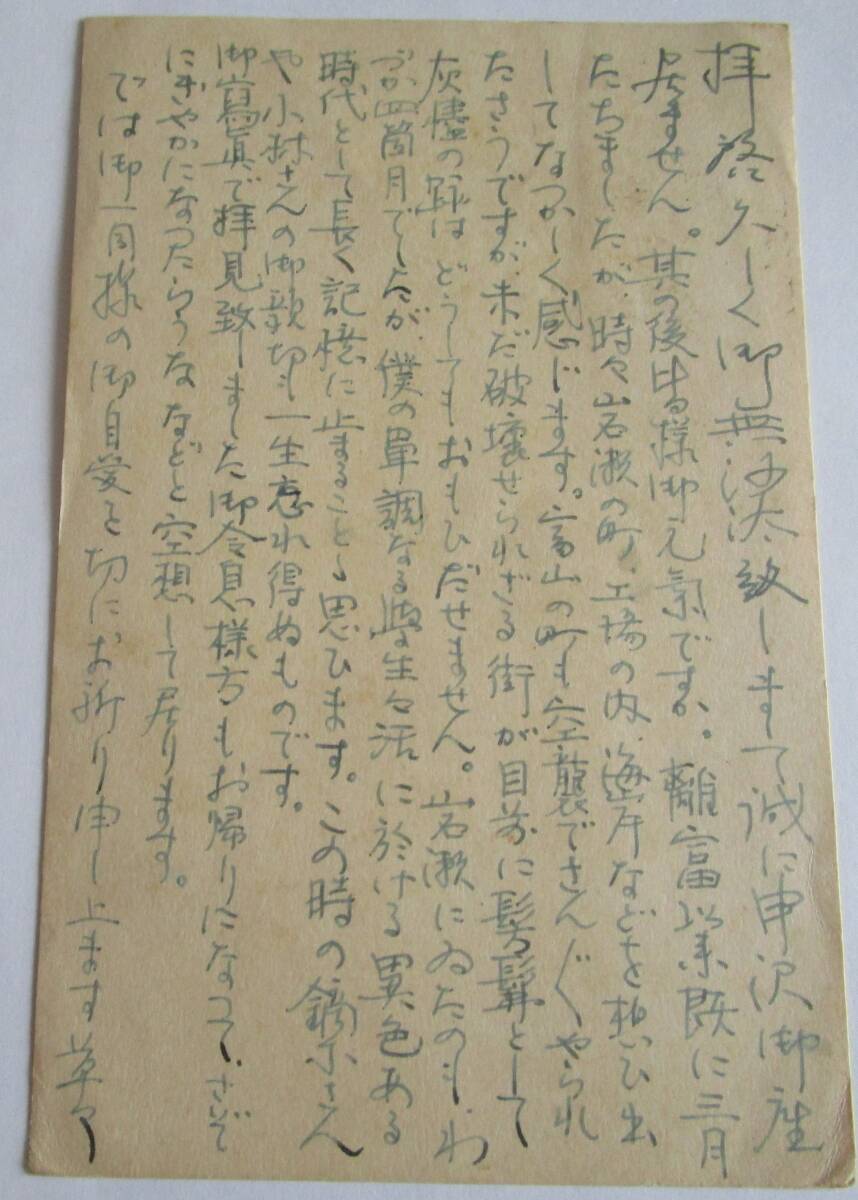 拝啓久しく御無沙汰致しまして誠に申訳御座
居ません。其の後皆様御元氣ですか。離富以来既に三月
たちましたが、時々岩瀬の町、工場の内、海岸などを想ひ出
してなつかしく感じます。富山の町も空襲でさんざんやられ
たさうですが、未だ破壊せられざる街が目前に髣髴として
灰燼の跡はどうしてもおもひだせません。岩瀬にゐたのも、わ
づか四箇月でしたが、僕の單調なる學生々活に於ける異色ある
時代として長く記憶に止まることゝ思ひます。この時の鏑木さん
や小林さんの御親切も一生忘れ得ぬものです。
御寫真で拝見致しました御令息様方もお帰りになつて、さぞ
にぎやかになつたらうななどと空想して居ります。
では御一同様の御自愛を切にお祈り申し上ます 草々